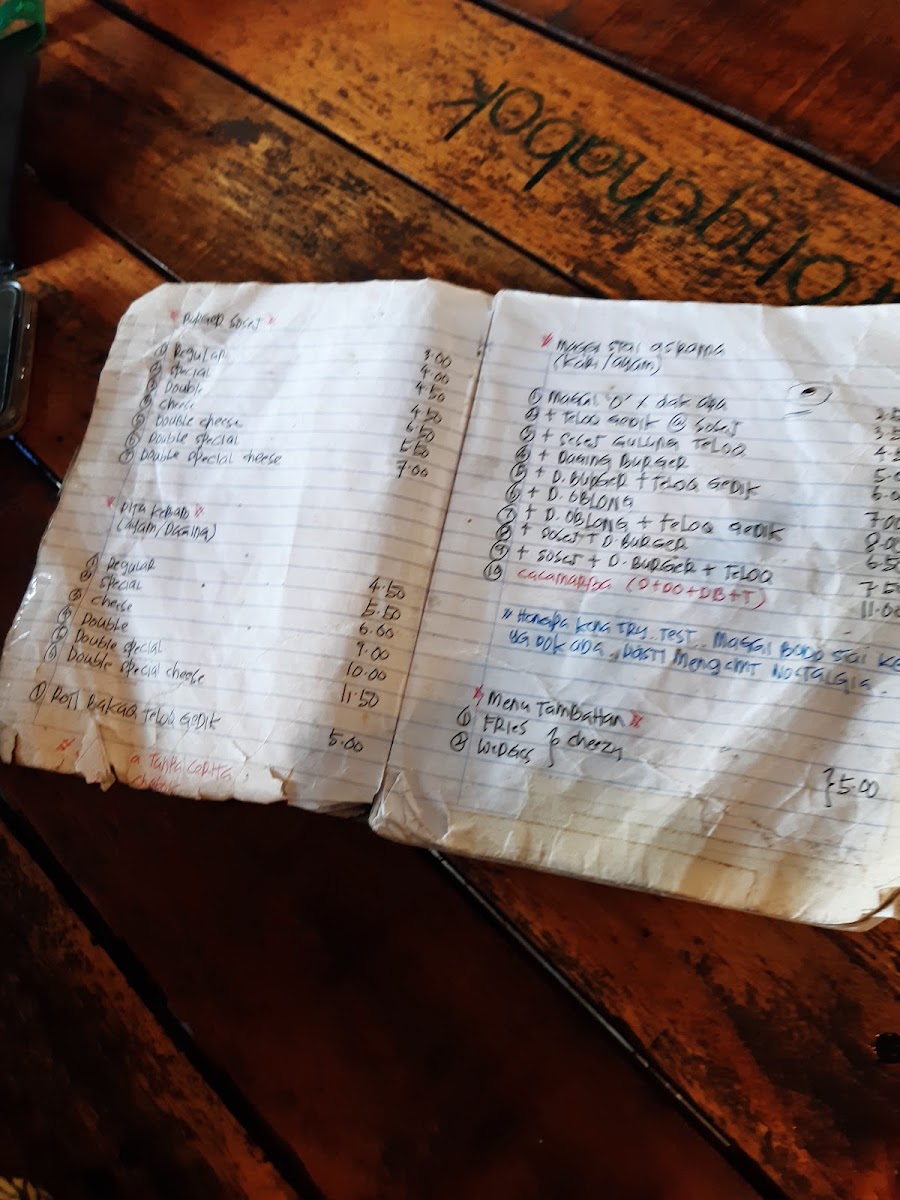 * BURGER SOSEJ *
① Regular 3.00
② Special 4.00
③ Double 4.50
④ Cheese 4.50
⑤ Double cheese 6.50
⑥ Double special 5.50
⑦ Double special cheese 7.00
* PITA KEBAB *
(Ayam/Daging)
① Regular 4.50
② Special 5.50
③ Cheese 6.00
④ Double 9.00
⑤ Double special 10.00
⑥ Double special cheese 11.50
① ROTI BAKAQ TELOQ GEDIK 5.00
a TANPA CERITA
* Maggi stai asrama
(Kari/ayam)
① Maggi 'O' X dak apa
② + TELOQ GEDIK @ SOSEJ
③ + SOSEJ GULUNG TELOQ
④ + DAGING BURGER
⑤ + D. BURGER + TELOQ GEDIK
⑥ + D. OBLONG
⑦ + D. OBLONG + TELOQ GEDIK
⑧ + SOSEJ + D. BURGER
⑨ + SOSEJ + D. BURGER + TELOQ
⑩ (O+DO+DB+T) 11.00
kena TRY.. TEST.. MAGGI
DOK ADA.. PASTI MENGAMIT NOSTALGIA.
* Menu TamBaHan *
① FRIES } cheezy
② WEDGES
} 5.00